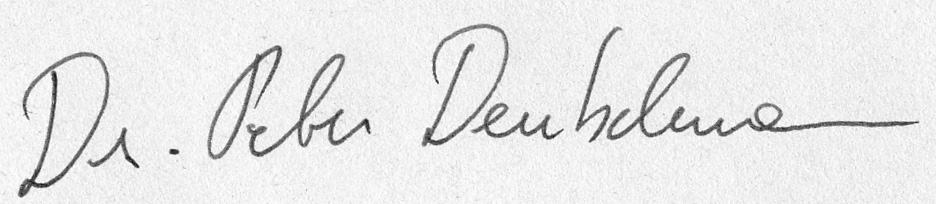 Dr. Peter Deutschmann